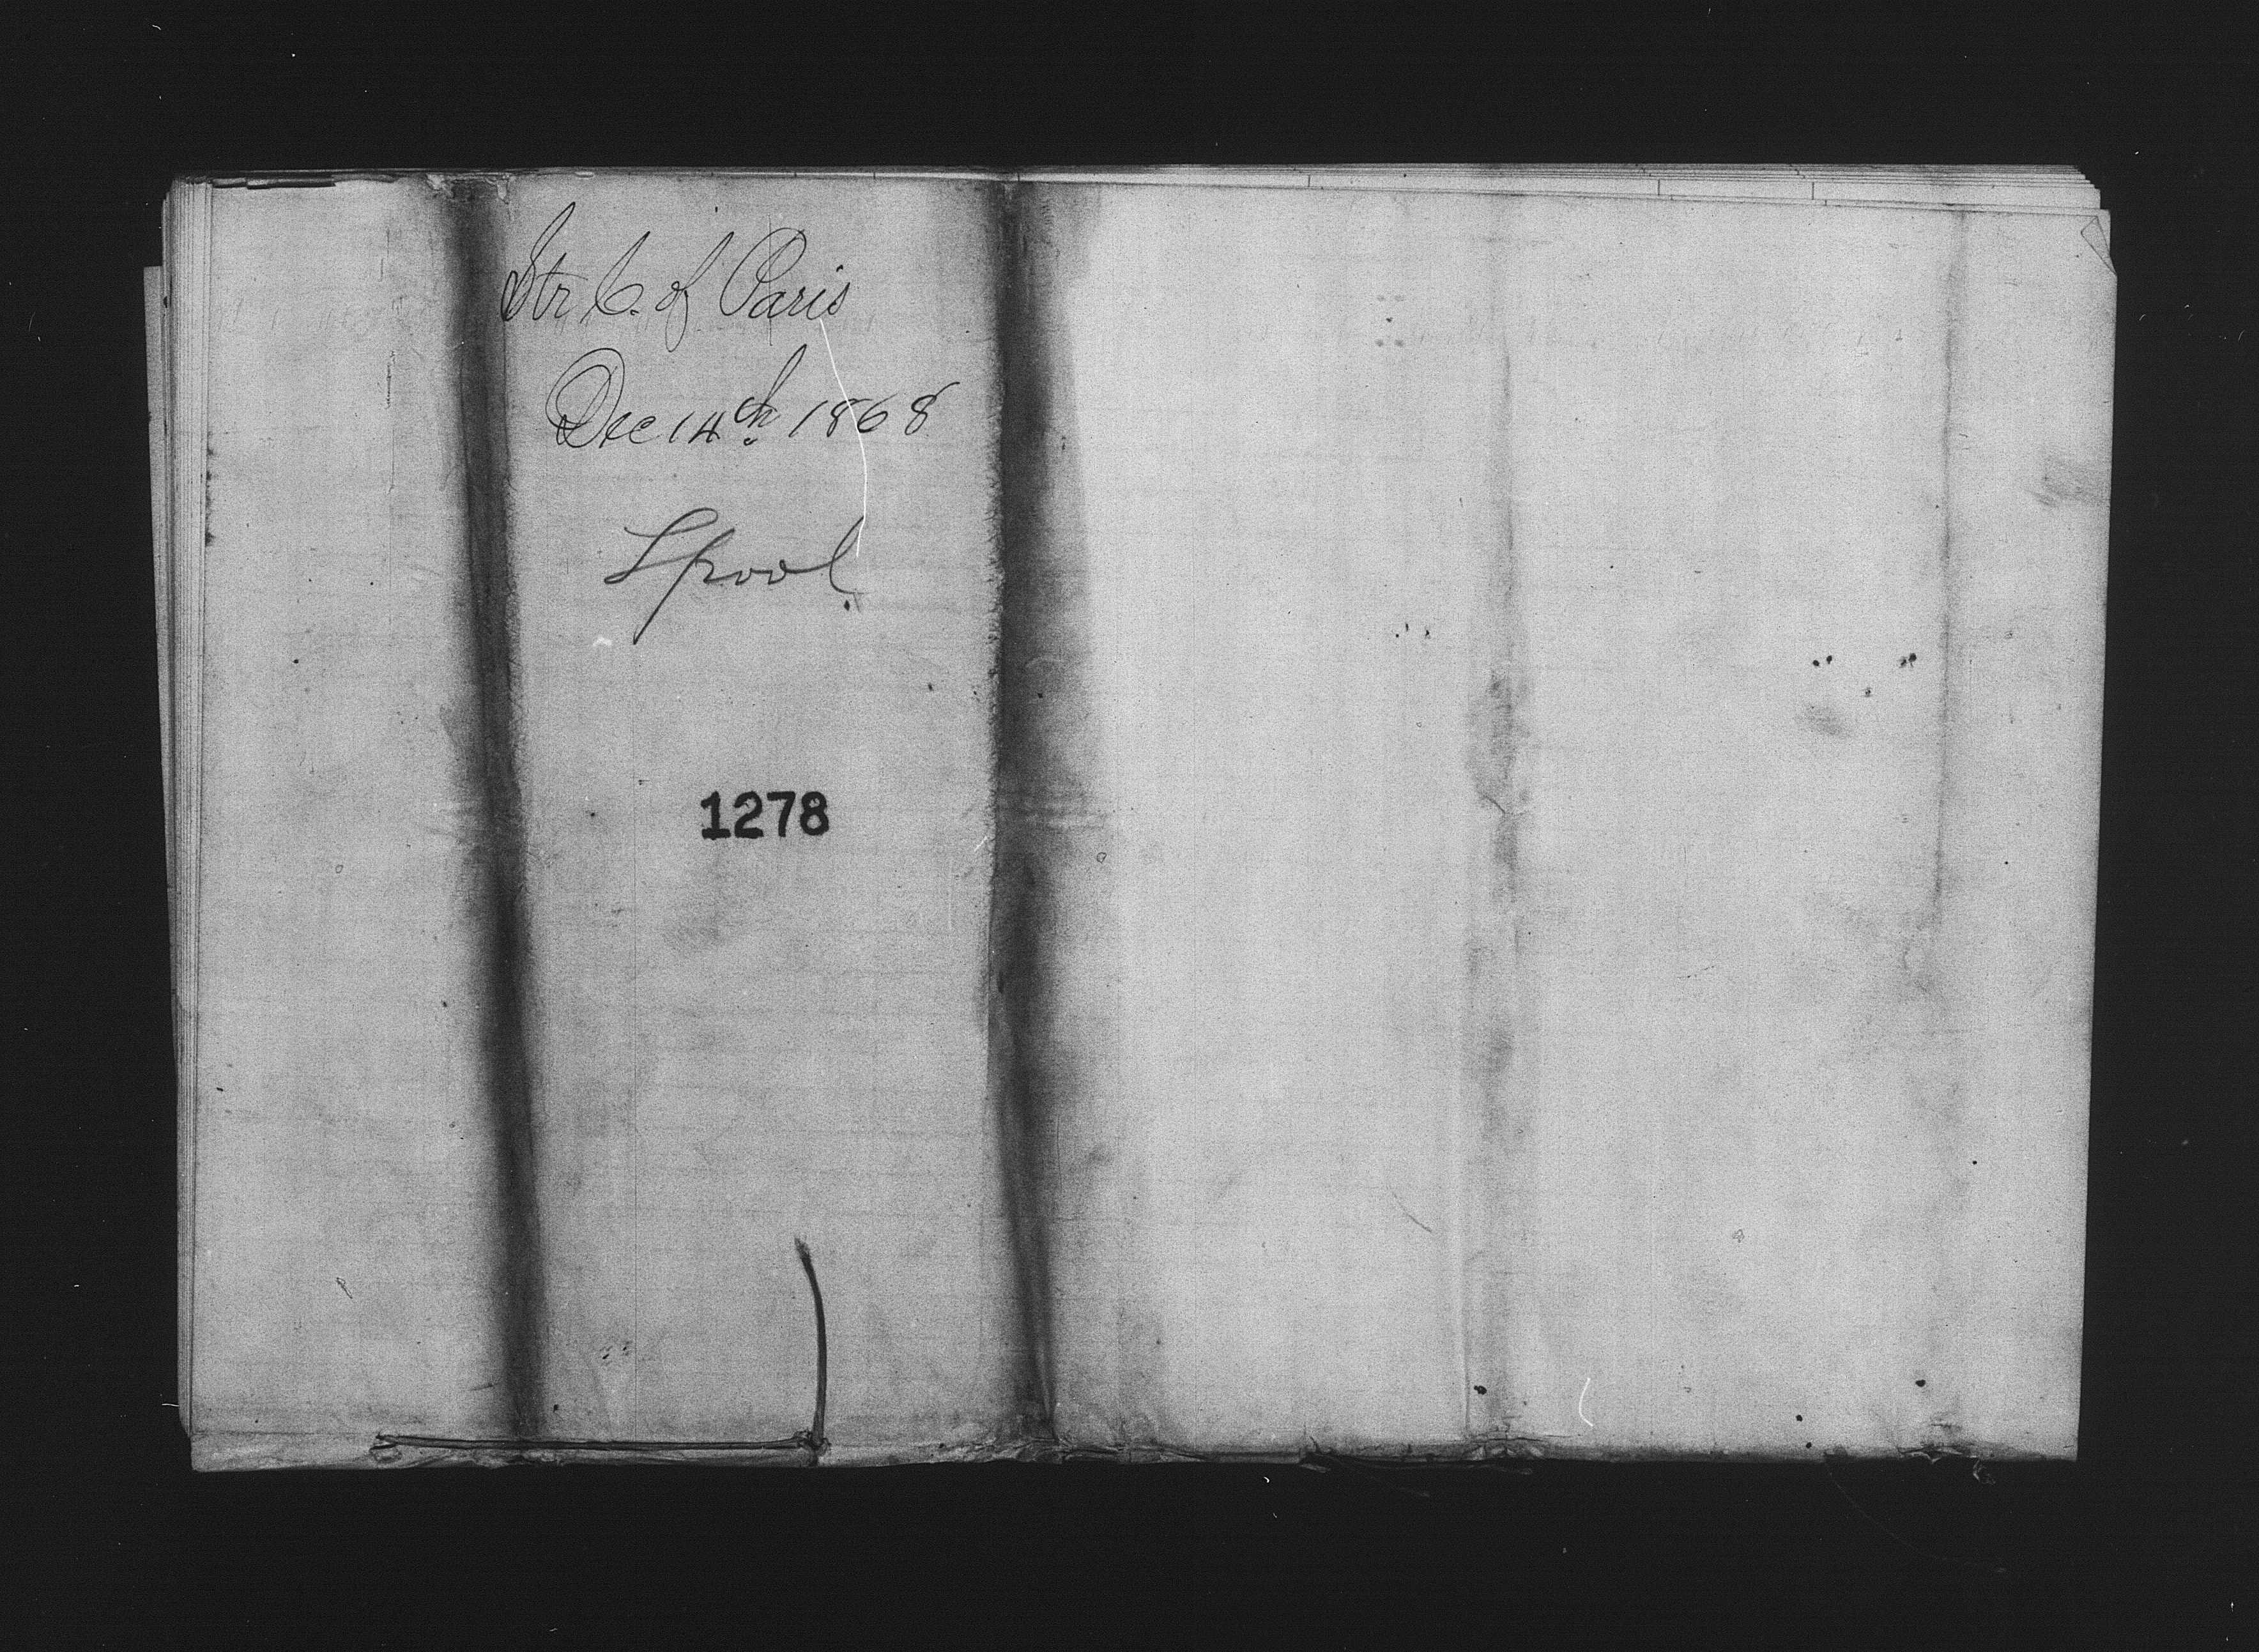 Str C. of Paris
Dec 14th 1868
Lpool.
1278